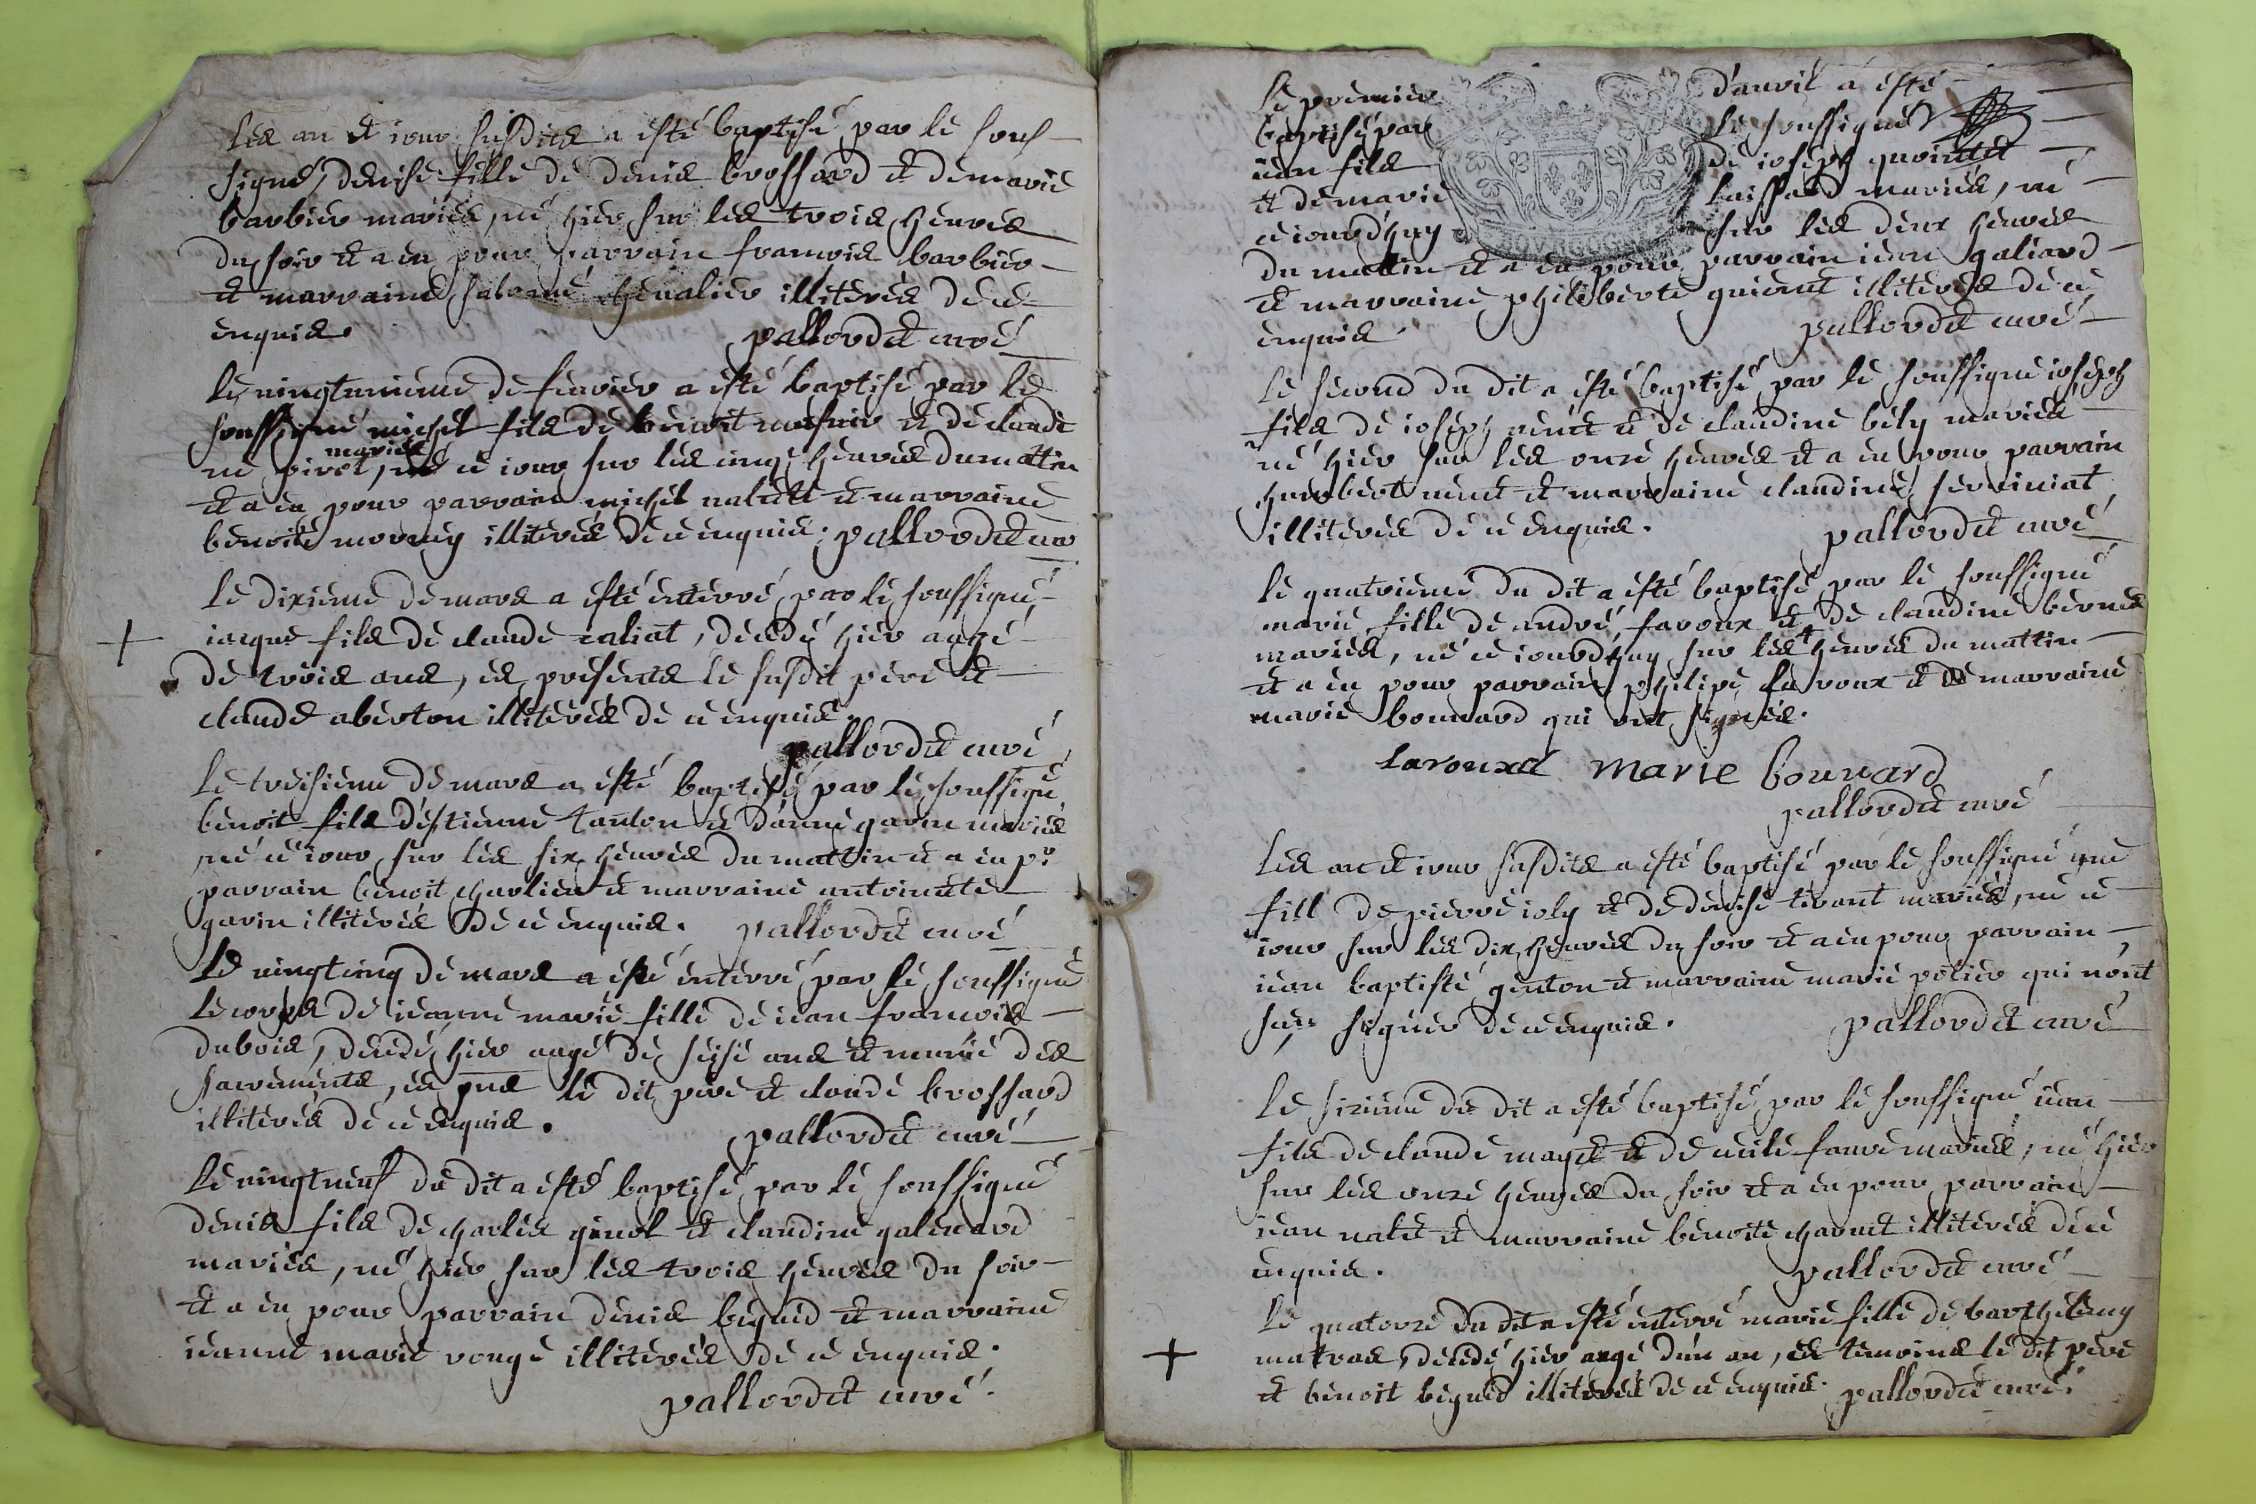 Les an et iour susdits a esté baptisé par le sous
signé, denise fille de denis brossard et de marie
barbier mariés, né hier sur les trois heures
du soir et a eu pour parrain francois barbier
et marraine salomé chevalier illiterés de ce
enquis. pallordet curé
Le vingtunieme de fevrier a esté baptisé par le
soussigné michel fils de benoit et de claude
mariés
pivot, né ce iour sur les cinq heures du mattin
et a eu pour parrain michel nalet et marraine
benoite morney illiterés de ce enquis; pallordet curé
Le dixieme de mars a esté enterré par le soussigné
iacque fils de claude caliat, decedé hier aagé
de trois ans, es presents le susdit pere et
claude aberton illiterés de ce enquis.
pallordet curé
Le treisieme de mars a esté baptisé par le soussigné
benoit fils d'estienne tanton et d'anne garin mariés
né ce iour sur les six heures du mattin et a eu pr
parrain benoit charlien et marraine antoinette
garin illiterés de ce enquis. pallordet curé
Le vingtcinq de mars a esté enterré par le soussigné
le corps de ieanne marie fille de iean francois
dubois, decedé hier aagé de seise ans et munie des
sacrements, es pnts le dit pere et claude brossard
illiterés de ce enquis. pallordet curé
Le vingtneuf du dit a esté baptisé par le soussigné
denis fils de charles genot et claudine galenard
mariés, né hier sur les trois heures du soir
et a eu pour parrain denis beguid et marraine
ieanne marie rouge illiterés de ce enquis.
pallordet curé.
Le premier d'auril a esté
baptisé par le soussigné
iean fils de ioseph guointet
et de marie laissard mariés, né
ce iourd'huy sur les deux heures
du mattin et a eu pour parrain iean galiard
et marraine philiberte guienet illiterés de ce
enquis. pallordet curé
Le second du dit a esté baptisé par le soussigné ioseph
fils de ioseph venet et de claudine bély mariés
né hier sur les onze heures et a eu pour parrain
humbert venet et marraine claudine serviniat
illiterés de ce enquis. pallordet curé
Le quatrieme du dit a esté baptisé par le soussigné
marie fille de andré laroux et de claudine bernes
mariés, né ce iourd'huy sur les 4 heures du mattin
et a eu pour parrain philipe laroux et de marraine
marie bonnard qui ont signés.
larouxd marie bonnard
pallordet curé
Les an et iour susdits a esté baptisé par le soussigné une
fill de pierre ioly et de denise tirant mariés, né ce
iour sur les dix heures du soir et a eu pour parrain
iean baptiste genton et marraine marie potier qui n'ont
sceu signer de ce enquis. pallordet curé
Le sixieme du dit a esté baptisé par le soussigné iean
fils de claude mayet et de cecile faure mariés, né hier
sur les onze heures du soir et a eu pour parrain
iean nalet et marraine benoite charnet illiterés de ce
enquis. pallordet curé
Le quatorze du dit a esté enterré marie fille de barthelemy
matras, decedé hier aagé d'un an, es temoins le dit pere
et benoit beguid illiterés de ce enquis. pallordet curé.